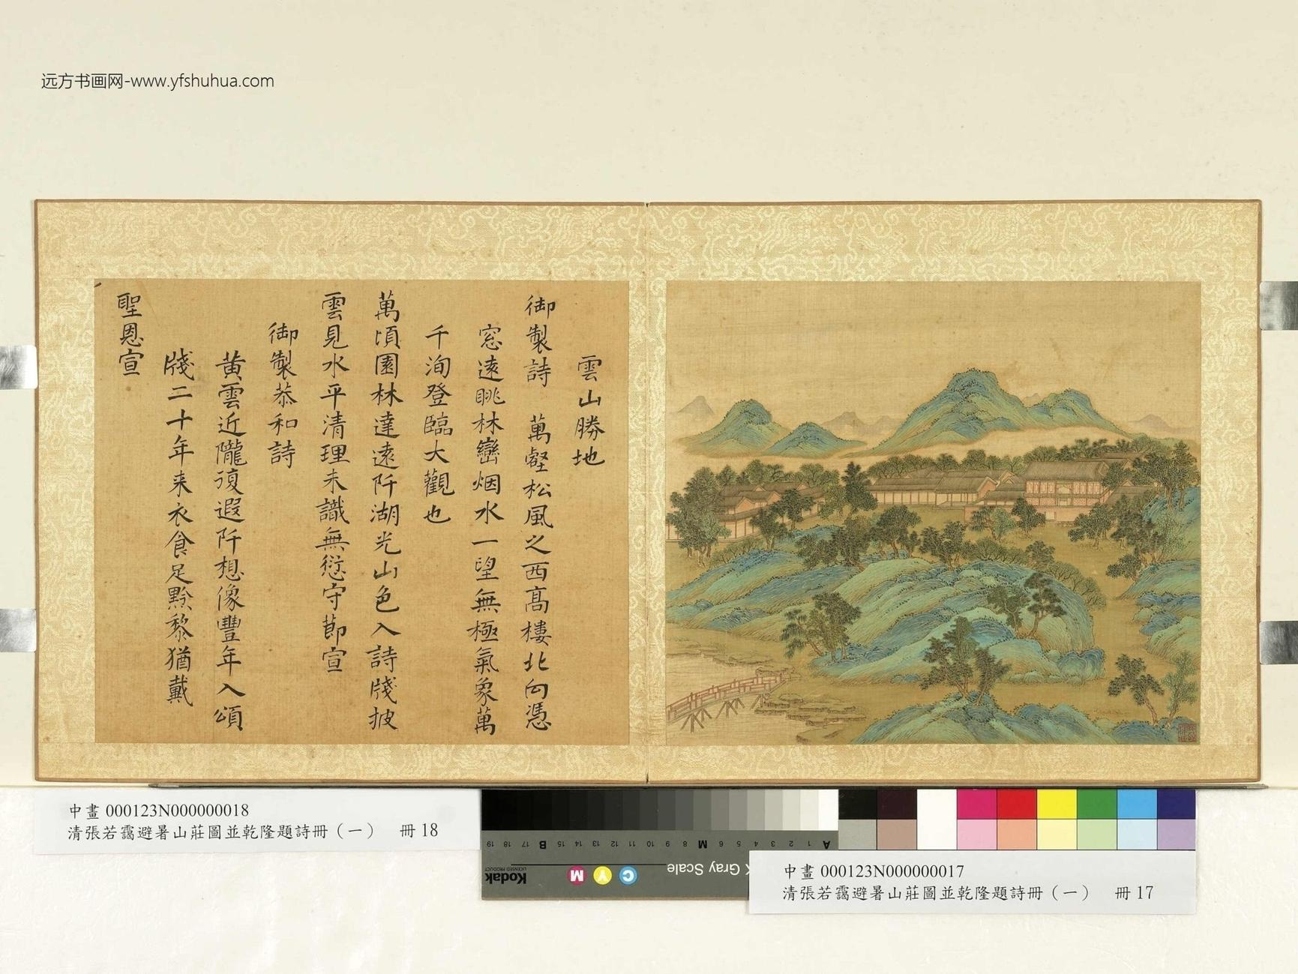 远方书画网-www.yfshuhua.com
雲山勝地
御製詩 萬壑松風之西高樓北向憑
窓遠眺林巒烟水一望無極氣象萬
千洵登臨大觀也
萬頃園林達遠阡湖光山色入詩牋披
雲見水平清理未識無愆守節宣
御製恭和詩
黃雲近隴復遐阡想像豐年入頌
牋二十年来衣食足黔黎猶戴
聖恩宣
中畫 000123N000000018
清張若靄避暑山莊圖並乾隆題詩冊（一） 冊 18
Kodak
LICENSED PRODUCT
Gray Scale
C Y M
A 1 2 3 4 5 6 M 8 9 10 11 12 13 14 15 B 17 18 19
中畫 000123N000000017
清張若靄避暑山莊圖並乾隆題詩冊（一） 冊 17